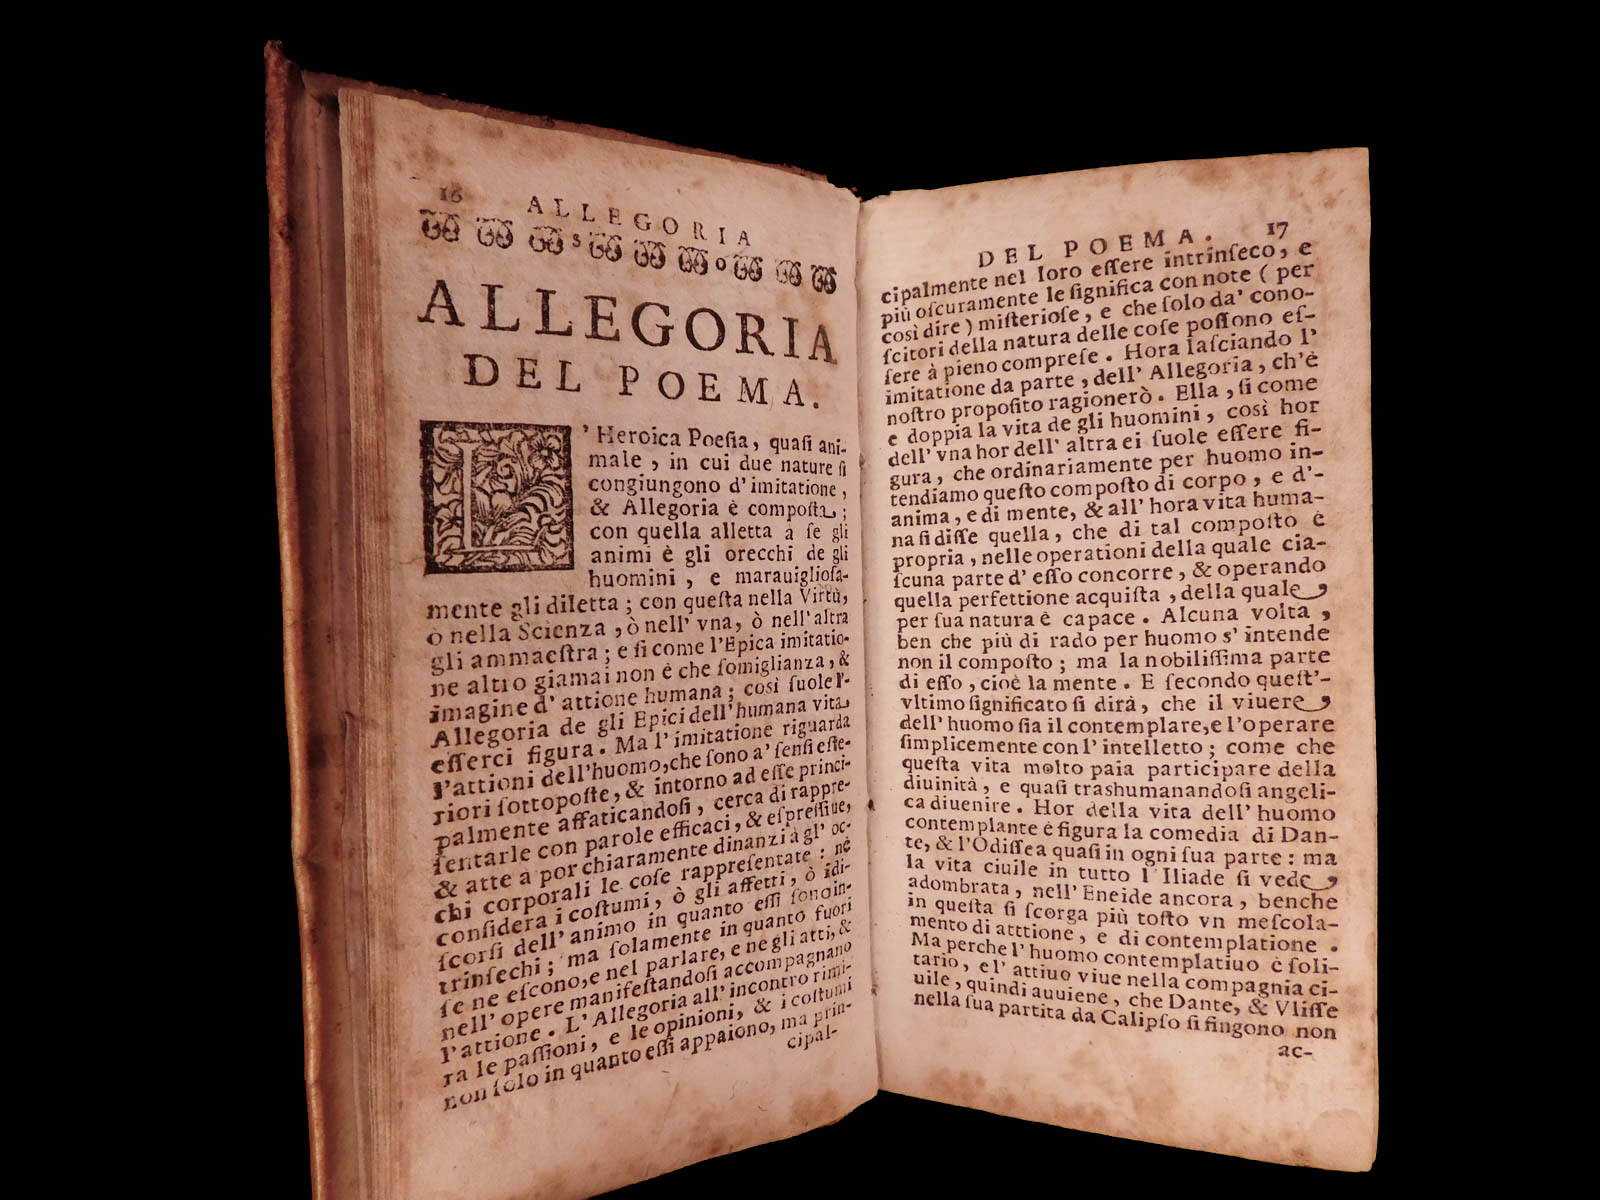 16 ALLEGORIA
S O
ALLEGORIA
DEL POEMA.
L'Heroica Poeſia, quaſi ani-
male, in cui due nature ſi
congiungono d'imitatione,
& Allegoria è compoſta;
con quella alletta à ſe gli
animi è gli orecchi de gli
huomini, e marauiglioſa-
mente gli diletta; con queſta nella Virtù,
ò nella Scienza, ò nell' vna, ò nell' altra
gli ammaeſtra; e ſi come l'Epica imitatio-
ne altro giamai non è che ſomiglianza, &
imagine d' attione humana; così ſuole l'-
Allegoria de gli Epici dell'humana vita
eſſerci figura. Ma l' imitatione riguarda
l'attioni dell'huomo, che ſono a' ſenſi eſte-
riori ſottopoſte, & intorno ad eſſe princi-
palmente affaticandoſi, cerca di rappre-
ſentarle con parole efficaci, & eſpreſſiue,
& atte a por chiaramente dinanzi à gl' oc-
chi corporali le coſe rappreſentate: nè
conſidera i coſtumi, ò gli affetti, ò idi-
ſcorſi dell' animo in quanto eſſi ſono in-
trinſechi; ma ſolamente in quanto fuori
ſe ne eſcono, e nel parlare, e ne gli atti, &
nell' opere manifeſtandoſi accompagnano
l'attione. L'Allegoria all' incontro rimi-
ra le paſſioni, e le opinioni, & i coſtumi
non ſolo in quanto eſſi appaiono, ma prin-
cipal-
DEL POEMA. 17
cipalmente nel loro eſſere intrinſeco, e
più oſcuramente le ſignifica con note (per
così dire) miſterioſe, e che ſolo da' cono-
ſcitori della natura delle coſe poſſono eſ-
ſere à pieno compreſe. Hora laſciando l'
imitatione da parte, dell' Allegoria, ch'è
noſtro propoſito ragionerò. Ella, ſi come
e doppia la vita de gli huomini, così hor
dell' vna hor dell' altra ei ſuole eſſere fi-
gura, che ordinariamente per huomo in-
tendiamo queſto compoſto di corpo, e d'-
anima, e di mente, & all' hora vita huma-
na ſi diſſe quella, che di tal compoſto è
propria, nelle operationi della quale cia-
ſcuna parte d' eſſo concorre, & operando
quella perfettione acquiſta, della quale,
per ſua natura è capace. Alcuna volta,
ben che più di rado per huomo s' intende
non il compoſto; ma la nobiliſſima parte
di eſſo, cioè la mente. E ſecondo queſt'-
vltimo ſignificato ſi dirà, che il viuere,
dell' huomo ſia il contemplare, e l'operare
ſimplicemente con l' intelletto; come che
queſta vita molto paia participare della
diuinità, e quaſi trashumanandoſi angeli-
ca diuenire. Hor della vita dell' huomo
contemplante è figura la comedia di Dan-
te, & l'Odiſſea quaſi in ogni ſua parte: ma
la vita ciuile in tutto l Iliade ſi vede,
adombrata, nell' Eneide ancora, benche
in queſta ſi ſcorga più toſto vn meſcola-
mento di atttione, e di contemplatione.
Ma perche l' huomo contemplatiuo è ſoli-
tario, e l' attiuo viue nella compagnia ci-
uile, quindi auuiene, che Dante, & Vliſſe
nella ſua partita da Calipſo ſi fingono non
ac-